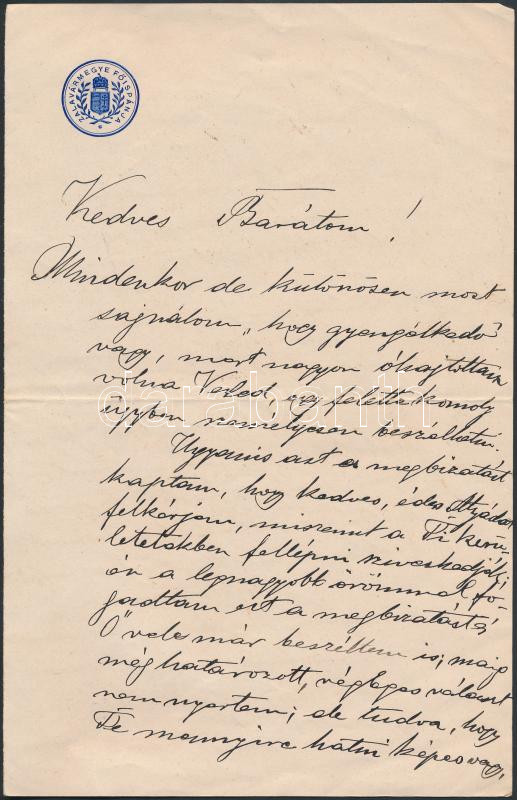 ZALAVÁRMEGYE FŐISPÁNJA
Kedves Barátom!
Mindenkor de különösen most
sajnálom, hogy gyengélkedő
vagy, mert nagyon óhajtottam
volna Veled egy felette komoly
ügyben személyesen beszélhetni.
Ugyanis azt a megbizatást
kaptam, hogy kedves, édes Atyádat
felkérjem, miszerint a Ti kerü-
letetekben fellépni sziveskedjék;
én a legnagyobb örömmel fo-
gadtam ezt a megbizatást s
Ő vele már beszéltem is; maig
még határozott, végleges választ
nem nyertem; de tudva, hogy
Te mennyire hatni képes vagy,
darabanth